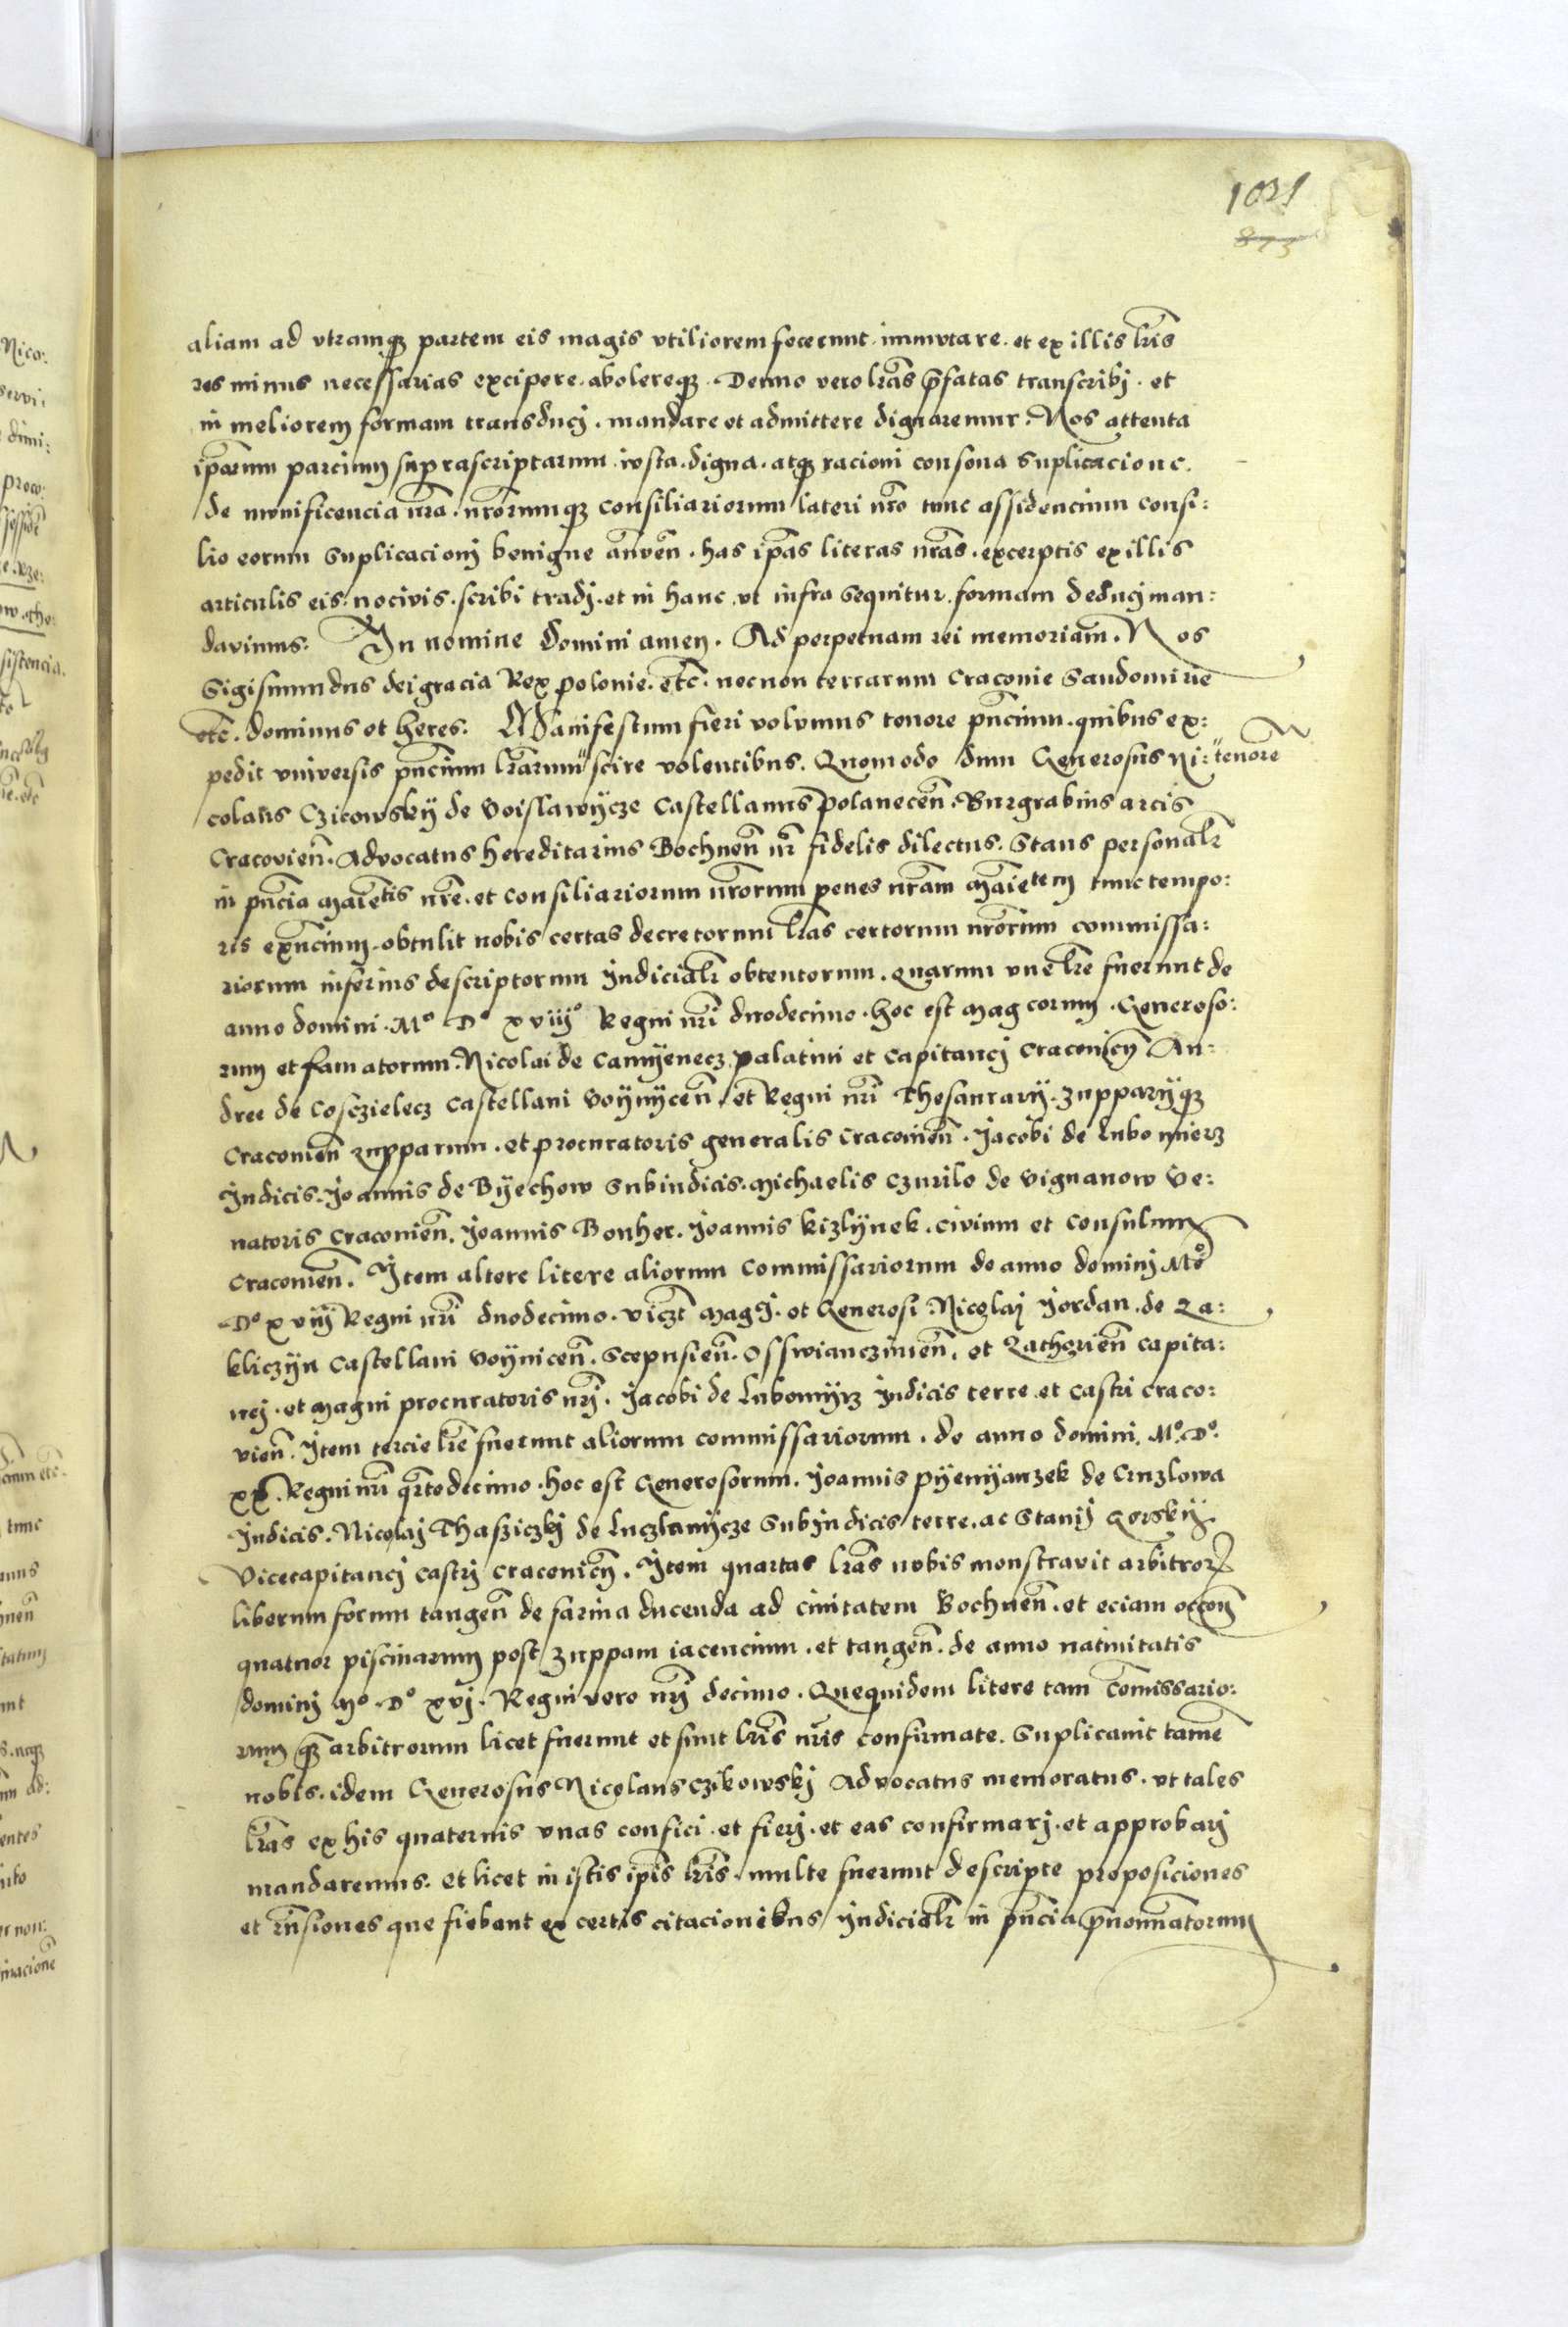 1031
873
aliam ad vtramq partem eis magis vtiliorem fecerunt immutare et ex illis lris
res minus necessarias excipere abolereq. Denuo vero lras pfatas transcribj et
in meliorem formam transducj. mandare et admittere dignaremur. Nos attenta
iparum parcium suprascriptarum iusta. digna. atq racioni consona suplicacione.
de munificencia nra. nrorumq consiliariorum lateri nro tunc assidencium consi:
lio eorum suplicacionj benigne anuen. has ipas literas nras. excerptis ex illis
articulis eis nocivis. scribi tradj. et in hanc vt infra sequitur formam deducj man:
davimus. In nomine domini amen. Ad perpetuam rei memoriam. Nos
Sigismundus dei gracia Rex polonie. etc. necnon terrarum Cracouie Sandomirie
etc. dominus et heres. Manifestum fieri volumus tenore pncium. quibus ex:
pedit vniversis pncium lrarum scire volentibus. Quomodo dum Generosus Ni: tenore
colaus Czicowskÿ de Voislawÿcze Castellanus polanecen. Burgrabius arcis
Cracovien. Advocatus hereditarius Bochnen nr fidelis dilectus. Stans personalr
in pncia maietis nre. et consiliariorum nrorum penes nram maietem tunc tempo:
ris exncium. obtulit nobis certas decretorum lras certorum nrorum commissa:
riorum inferius descriptorum Judicialr obtentorum. quarum vne lre fuerunt de
anno domini. Mo Do xviijo Regni nri duodecimo. hoc est magcorum. Generoso:
rum et famatorum. Nicolai de Camÿenecz palatini et Capitancj Cracouien An:
dree de Cosczielecz Castellani Voÿnÿcen et Regni nri Thesaurarij. zupparijq
Cracouien zupparum. et procuratoris generalis Cracouien. Jacobi de Lubomierz
Judicis. Joannis de Bÿechow Subiudicis. Michaelis Czurilo de Vignanow Ve:
natoris Cracouien. Joannis Bonher. Joannis kizlÿnek. civium et consulum
Cracouien. Item altere litere aliorum Commissariorum de anno dominj Mo
Do xviij Regni nri duodecimo. viczt mag J. et Generosi Nicolaj Jordan. de Za:
kliczÿn Castellani Voÿnicen. Scepusien. Osswianczimen. et Zathorien capita:
nej. et magni procuratoris nrj. Jacobi de Lubomÿrz Judicis terre et castri Craco:
vien. Item tercie lre fuerunt aliorum commissariorum. de anno domini. Mo. Do.
xx. Regni nri qrtodecimo. hoc est Generosorum. Joannis pÿenÿanzek de Cruzlowa
Judicis. Nicolaj Thasziczkj de Luczlawÿcze Subiudicis terre. ac Stanij Gorskij
Vicecapitancj castrj Cracouien. Item quartas lras nobis monstravit arbitror
liberum forum tangen de farina ducenda ad ciuitatem Bochnen. et eciam
quatuor piscinarum post zuppam iacencium. et tangen. de anno natiuitatis
dominj Mo. Do xvj. Regni vero nrj decimo. Quequidem litere tam comissario:
rum q arbitrorum licet fuerunt et sunt lris nris confirmate. Suplicauit tame
nobis. idem Generosus Nicolaus Czikowskj Advocatus memoratus. vt tales
lras ex his quaternis vnas confici. et fierj. et eas confirmarj. et approbarj
mandaremus. et licet in istis ipis lris. multe fuerunt descripte proposiciones
et rnsiones que fiebant ex certis citacionibus Judicialr in pncia pnominatorum